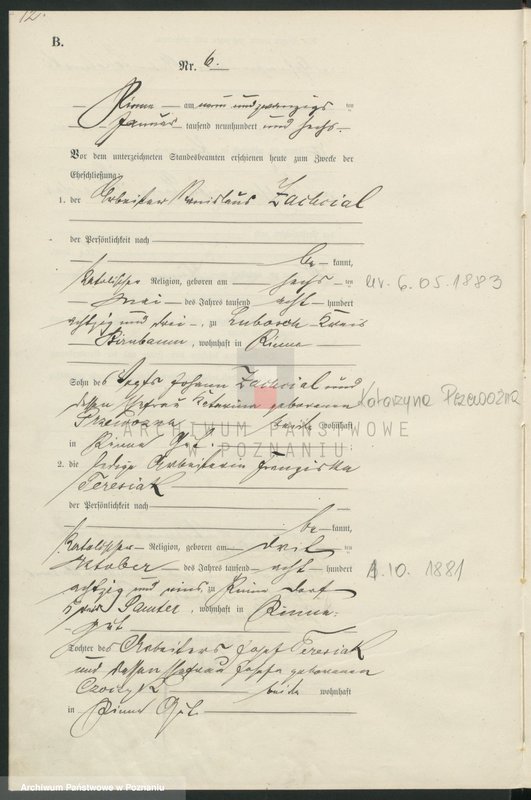 12.
B.
Nr. 6.
Pinne am neun und zwanzigs ten
Januar tausend neunhundert und sechs.
Vor dem unterzeichneten Standesbeamten erschienen heute zum Zwecke der
Eheschließung:
1. der Arbeiter Stanislaus Zachcial
der Persönlichkeit nach
be kannt,
katolischer Religion, geboren am sechs ten
Mai des Jahres tausend acht hundert
achtzig und drei, zu Lubosch Kreis
Birnbaum, wohnhaft in Pinne
ur. 6.05.1883
Sohn des Vogts Johann Zachcial und
dessen Ehefrau Katarina geborenen
Katarzyna Przewoźna
beide wohnhaft
in Pinne Gut.
ARCHIWUM PAŃSTWOWE
W POZNANIU
2. die ledige Arbeiterin Franziska
Teresiak
der Persönlichkeit nach
be kannt,
katolischer Religion, geboren am drei ten
Oktober des Jahres tausend acht hundert
.10. 1881
achtzig und eins zu Pinne Dorf
Kreis Samter, wohnhaft in Pinne
gut
Tochter des Arbeiters Josef Teresiak
und dessen Ehefrau Josefa geborenen
beide wohnhaft
in Pinne Gut
Archiwum Państwowe w Poznaniu